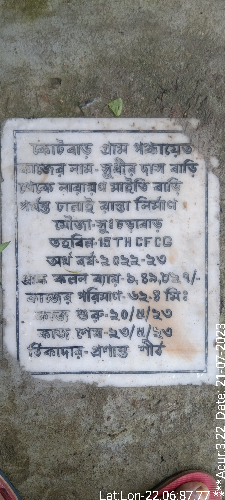 কোটবাড় গ্রাম পঞ্চায়েত
কাজের নাম-সুধীর দাস বাড়ি
থেকে নারায়ণ মাইতি বাড়ি
পর্যন্ত ঢালাই রাস্তা নির্মাণ
মৌজা-সুঃচড়াবাড়
তহবিল-15TH CFCG
অর্থ বর্ষ-২০২২-২৩
প্রাক কলন ব্যয়-১,৪৯,৮২৭/-
কাজের পরিমাণ-৬২.৪ মিঃ
কাজ শুরু-২০/৫/২৩
কাজ শেষ-২৩/৫/২৩
ঠিকাদার-প্রশান্ত শীঠ
Lat Lon-22.06 87.77
***Acur 3.22 Date: 21-07-2023 ***